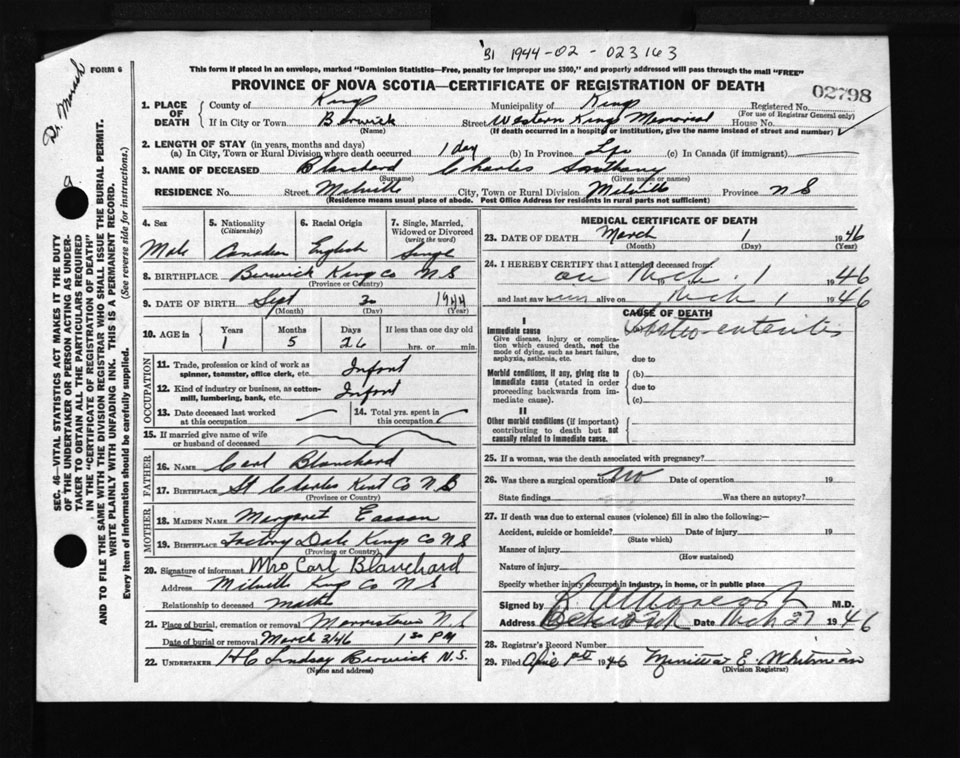 '31 1944-02-023163
This form if placed in an envelope, marked "Dominion Statistics—Free, penalty for improper use $300," and properly addressed will pass through the mail "FREE"
FORM 6
PROVINCE OF NOVA SCOTIA—CERTIFICATE OF REGISTRATION OF DEATH
02798
Dr. Marsh
SEC. 46—VITAL STATISTICS ACT MAKES IT THE DUTY
OF THE UNDERTAKER OR PERSON ACTING AS UNDER-
TAKER TO OBTAIN ALL THE PARTICULARS REQUIRED
IN THE "CERTIFICATE OF REGISTRATION OF DEATH"
AND TO FILE THE SAME WITH THE DIVISION REGISTRAR WHO SHALL ISSUE THE BURIAL PERMIT.
WRITE PLAINLY WITH UNFADING INK. THIS IS A PERMANENT RECORD.
Every item of information should be carefully supplied. (See reverse side for instructions.)
1. PLACE OF DEATH County of Kings Municipality of Kings Registered No.
(For use of Registrar General only)
If in City or Town Berwick Street Western Kings Memorial House No.
(Name) (If death occurred in a hospital or institution, give the name instead of street and number)
2. LENGTH OF STAY (in years, months and days)
(a) In City, Town or Rural Division where death occurred 1 day (b) In Province Life (c) In Canada (if immigrant)
3. NAME OF DECEASED Blanchard Charles Anthony
(Surname) (Given name or names)
RESIDENCE No. Street Melville City, Town or Rural Division Melville Province N S
(Residence means usual place of abode. Post Office Address for residents in rural parts not sufficient)
4. Sex Male
5. Nationality (Citizenship) Canadian
6. Racial Origin English
7. Single, Married, Widowed or Divorced (write the word) Single
8. BIRTHPLACE Berwick Kings Co N S
(Province or Country)
9. DATE OF BIRTH Sept 1944
(Month) (Day) (Year)
10. AGE in Years Months Days If less than one day old
1 5 26 hrs. or min.
OCCUPATION
11. Trade, profession or kind of work as spinner, teamster, office clerk, etc. Infant
12. Kind of industry or business, as cotton-mill, lumbering, bank, etc. Infant
13. Date deceased last worked at this occupation
14. Total yrs. spent in this occupation
15. If married give name of wife or husband of deceased
FATHER
16. NAME Carl Blanchard
17. BIRTHPLACE St Charles Kent Co N B
(Province or Country)
MOTHER
18. MAIDEN NAME Margaret Easson
19. BIRTHPLACE Factory Dale Kings Co N S
(Province or Country)
20. Signature of informant Mrs Carl Blanchard
Address Melville Kings Co N S
Relationship to deceased Mother
21. Place of burial, cremation or removal Morristown N S
Date of burial or removal March 3/46 PM
22. UNDERTAKER H C Lindsay Berwick N.S.
(Name and address)
MEDICAL CERTIFICATE OF DEATH
23. DATE OF DEATH March 1 1946
(Month) (Day) (Year)
24. I HEREBY CERTIFY that I attended deceased from:
on Mch 1 1946
and last saw him alive on Mch 1 1946
CAUSE OF DEATH
I
Immediate cause
Give disease, injury or complication which caused death, not the mode of dying, such as heart failure, asphyxia, asthenia, etc.
Gastro-enteritis
due to
Morbid conditions, if any, giving rise to immediate cause (stated in order proceeding backwards from immediate cause).
(b)
due to
(c)
II
Other morbid conditions (if important) contributing to death but not causally related to immediate cause.
25. If a woman, was the death associated with pregnancy?
26. Was there a surgical operation? no Date of operation 19
State findings Was there an autopsy?
27. If death was due to external causes (violence) fill in also the following:—
Accident, suicide or homicide? Date of injury 19
(State which)
Manner of injury
(How sustained)
Nature of injury
Specify whether injury occurred in industry, in home, or in public place
Signed by M.D.
Address Berwick Date Mch 27 1946
28. Registrar's Record Number
29. Filed April 1st 1946 E. Whitman
(Division Registrar)